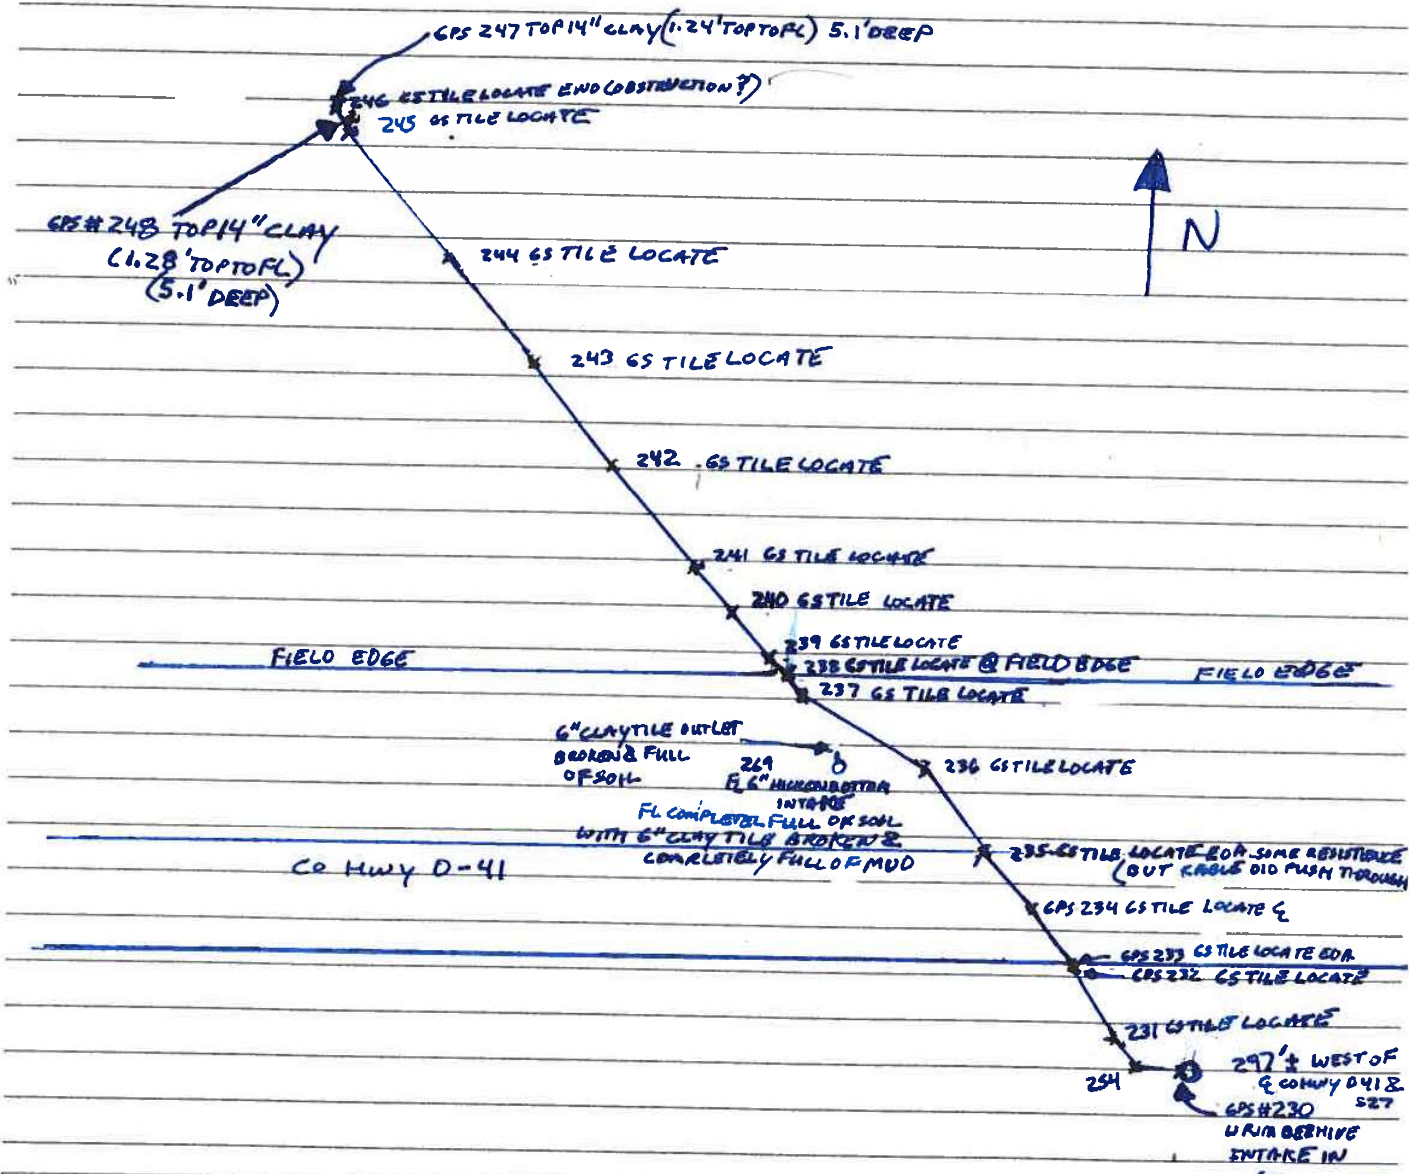 GPS 247 TOP 14" CLAY (1.24' TOP TO FL) 5.1' DEEP
246 GS TILE LOCATE END (OBSTRUCTION?)
245 GS TILE LOCATE
GPS # 248 TOP 14" CLAY
(1.28' TOP TO FL)
(5.1' DEEP)
N
244 GS TILE LOCATE
243 GS TILE LOCATE
242 GS TILE LOCATE
241 GS TILE LOCATE
240 GS TILE LOCATE
239 GS TILE LOCATE
FIELD EDGE
238 GS TILE LOCATE @ FIELD EDGE
FIELD EDGE
237 GS TILE LOCATE
6" CLAY TILE OUTLET
BROKEN & FULL
OF SOIL
269
FL 6" HICKENBOTTOM
INTAKE
FL COMPLETEL FULL OF SOIL
WITH 6" CLAY TILE BROKEN &
COMPLETELY FULL OF MUD
236 GS TILE LOCATE
CO HWY D-41
235-GS TILE LOCATE EOA SOME RESISTENCE
(BUT CABLE DID PUSH THROUGH
GPS 234 GS TILE LOCATE ℄
GPS 233 GS TILE LOCATE EOA
GPS 232 GS TILE LOCATE
231 GS TILE LOCATE
254
297'± WEST OF
℄ CO HWY D41 &
S27
GPS # 230
RIM BEEHIVE
INTAKE IN